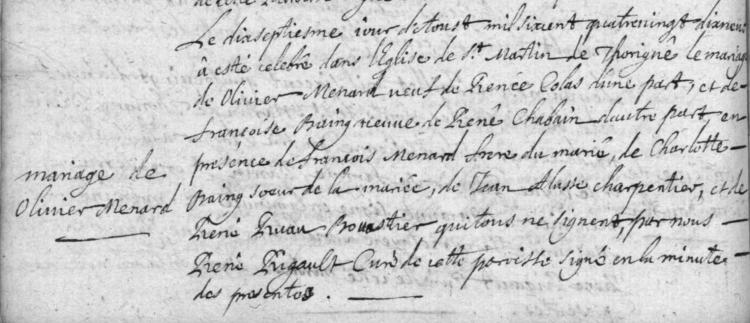 Le dixseptiesme iour d'aoust mil six cent quatre vingt dixneuf
à esté celebré dans l'Eglise de St Martin de Thorigné le mariage
de Olivier Menard veuf de Renée Colas d'une part, et de
françoise Baing veuve de René Chabain d'autre part, en
présence de francois Menard frere du marié, de Charlotte
Baing soeur de la mariée, de Jean Alasse charpentier, et de
René Ruau qui tous ne signent, par nous
René Rigault Curé de cette paroisse signé en la minute
des presentes.
mariage de
Olivier Menard